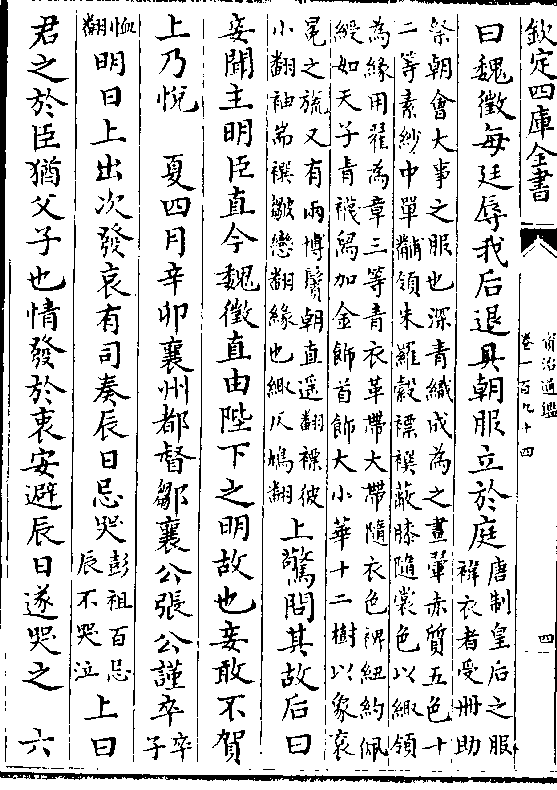 欽定四庫全書
資治通鑑
卷一百九十四
四
曰魏徵每廷辱我后退具朝服立於庭唐制皇后之服
褘衣者受册助
祭朝會大事之服也深青織成為之畫翬赤質五色十
二等素紗中單黼領朱羅縠褾襈蔽膝隨裳色以緅領
為緣用翟為章三等青衣革帶大帶隨衣色裨紐約佩
綬如天子青襪舄加金飾首飾大小華十二樹以象衮
冕之旒又有兩博鬢朝直遥翻褾彼
小翻袖耑襈皺戀翻緣也緅仄鳩翻上驚問其故后曰
妾聞主明臣直今魏徵直由陛下之明故也妾敢不賀
上乃悦 夏四月辛卯襄州都督鄒襄公張公謹卒卒子
恤翻明日上出次發哀有司奏辰日忌哭彭祖百忌
辰不哭泣上曰
君之於臣猶父子也情發於衷安避辰日遂哭之 六